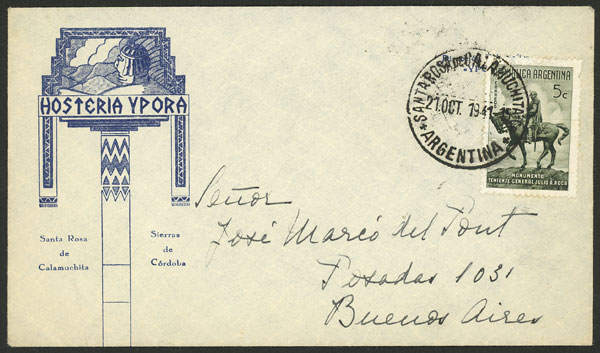 HOSTERIA YPORA
Santa Rosa
de
Calamuchita
Sierras
de
Córdoba
SANTA ROSA DE CALAMUCHITA
21 OCT. 1941
*ARGENTINA*
ICA ARGENTINA
5c
MONUMENTO
TENIENTE GENERAL JULIO A. ROCA
Señor
José Marcó del Pont
Posadas 1031
Buenos Aires